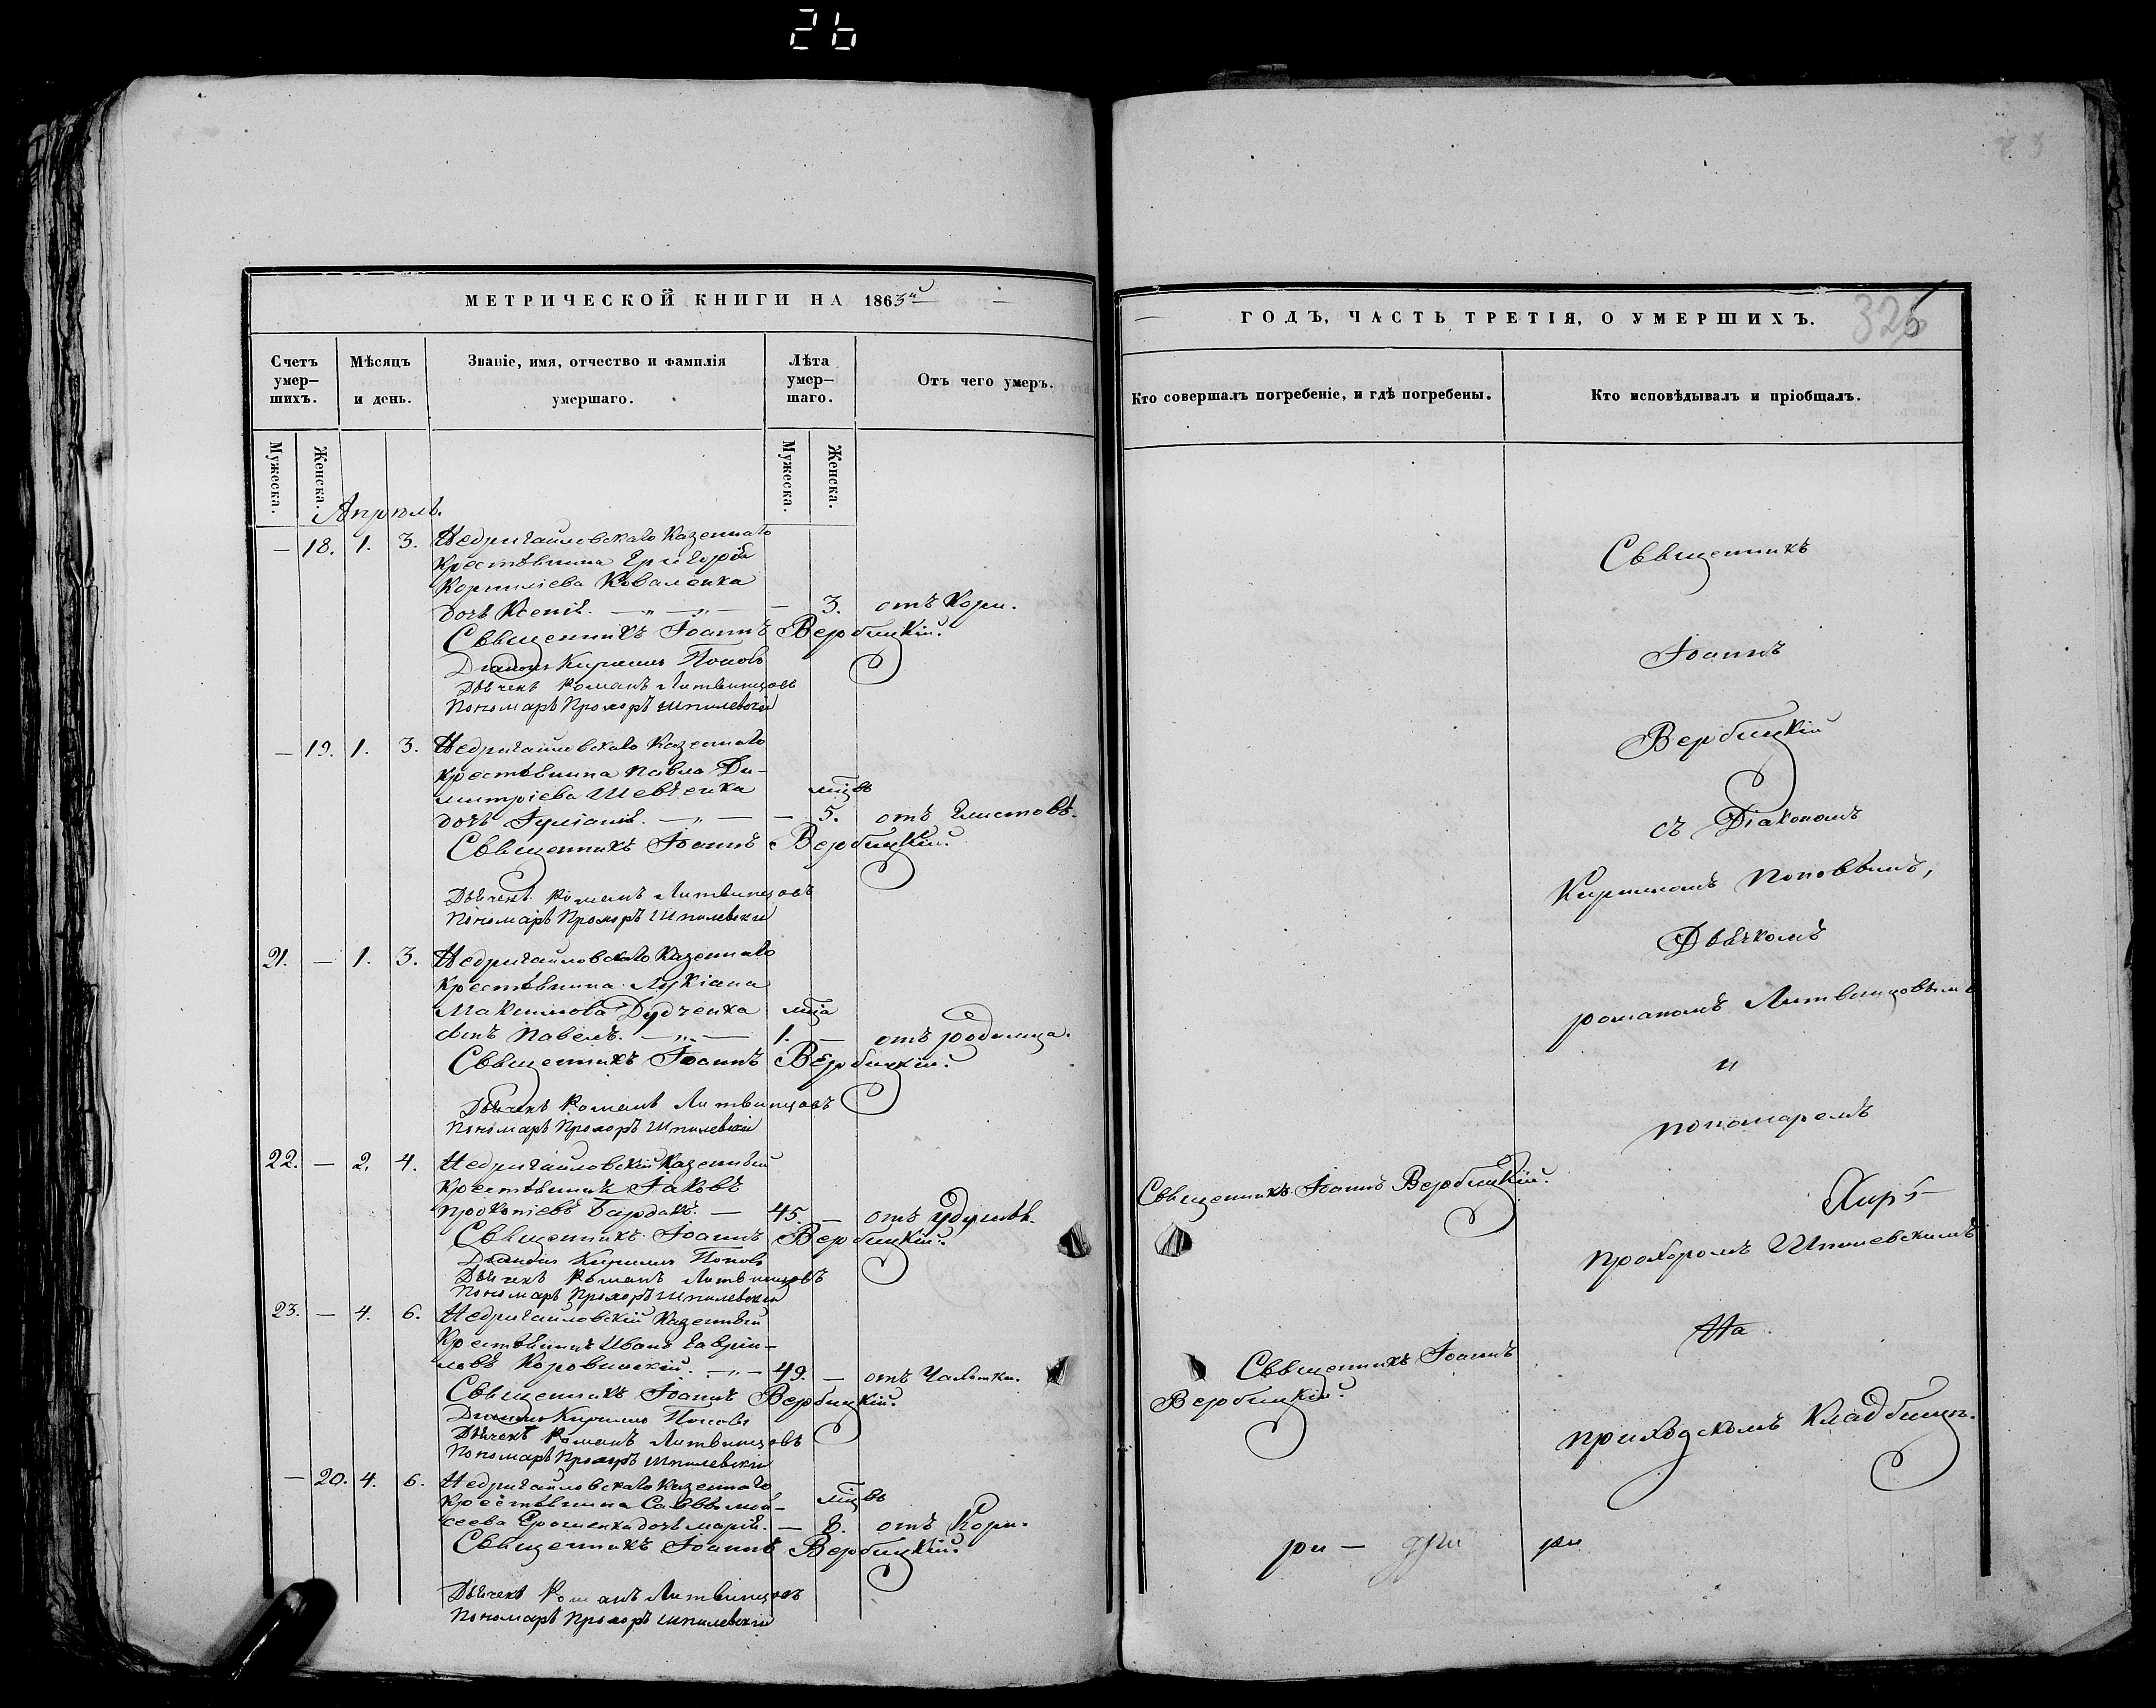 26
МЕТРИЧЕСКОЙ КНИГИ НА 1863й
Счетъ умер-шихъ.
Мѣсяцъ и день.
Званіе, имя, отчество и фамилія умершаго.
Лѣта умер-шаго.
Отъ чего умеръ.
Мужеска.
Женска.
Мужеска.
Женска.
Апрѣль.
— 18. 1. 3. Недригайловскаго Казеннаго
Крестьянина Григорія
Корнилiева Коваленка
дочь Ксенія. — „ — „ — — 3. отъ Кори.
Священникъ Іоаннъ Вербицкій.
Діаконъ Кириллъ Поповъ
Дьячекъ Романъ Литвинцовъ
Пономарь Прохоръ Шпилевскій
— 19. 1. 3. Недригайловскаго Казеннаго
крестьянина Павла Ди-
митріева Шевченка мцвъ
дочь Іуліанія. — „ — — 5. отъ Глистовъ.
Священникъ Іоаннъ Вербицкій.
Дьячекъ Романъ Литвинцовъ
Пономарь Прохоръ Шпилевскій
21. — 1. 3. Недригайловскаго Казеннаго
крестьянина Лукіана
Максимова Дудченка мца
сынъ Павелъ. — „ — 1. — отъ родимца.
Священникъ Іоаннъ Вербицкій.
Дьячекъ Романъ Литвинцовъ
Пономарь Прохоръ Шпилевскій
22. — 2. 4. Недригайловскій Казенный
крестьянинъ Іаковъ
Прокопіевъ Бардакъ. — 45. — отъ удушья.
Священникъ Іоаннъ Вербицкій.
Діаконъ Кириллъ Поповъ
Дьячекъ Романъ Литвинцовъ
Пономарь Прохоръ Шпилевскій
23. — 4. 6. Недригайловскій Казенный
Крестьянинъ Иванъ Гаврии-
ловъ Коровинскій. — „ — 49. — отъ Чахотки.
Священникъ Іоаннъ Вербицкій.
Діаконъ Кириллъ Поповъ
Дьячекъ Романъ Литвинцовъ
Пономарь Прохоръ Шпилевскій
— 20. 4. 6. Недригайловскаго Казеннаго
крестьянина Саввы Мой- мцвъ
сеева Ерошенка дочь Марія. — 8. отъ Кори.
Священникъ Іоаннъ Вербицкій.
Дьячекъ Романъ Литвинцовъ
Пономарь Прохоръ Шпилевскій
ГОДЪ, ЧАСТЬ ТРЕТІЯ, О УМЕРШИХЪ.
325
Кто совершалъ погребеніе, и гдѣ погребены.
Кто исповѣдывалъ и пріобщалъ.
Священникъ
Іоаннъ
Вербицкій
съ Діакономъ
Кириломъ Поповымъ,
Дьячкомъ
Романомъ Литвинцовымъ
и
пономаремъ
Священникъ Іоаннъ Вербицкій.
Прохоромъ Шпилевскимъ
На
Священникъ Іоаннъ
Вербицкій.
приходскомъ Кладбищѣ.